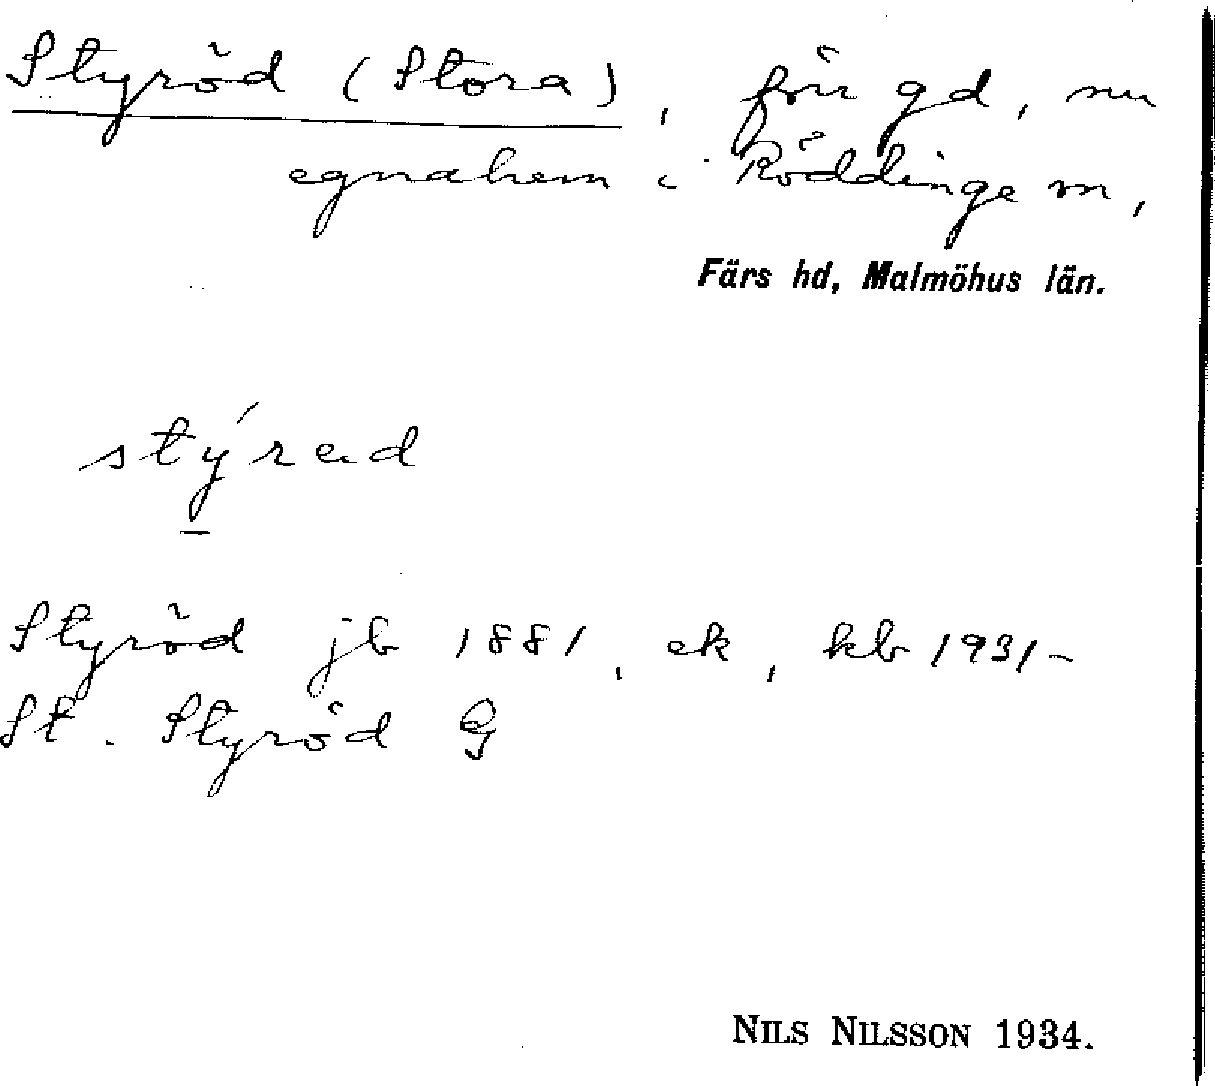 Styröd (Stora), förr gd, nu
egnahem i Röddinge sn,
Färs hd, Malmöhus län.
stýrad
Styröd jb 1881, ek, kb 1931-
St. Styröd G
NILS NILSSON 1934.